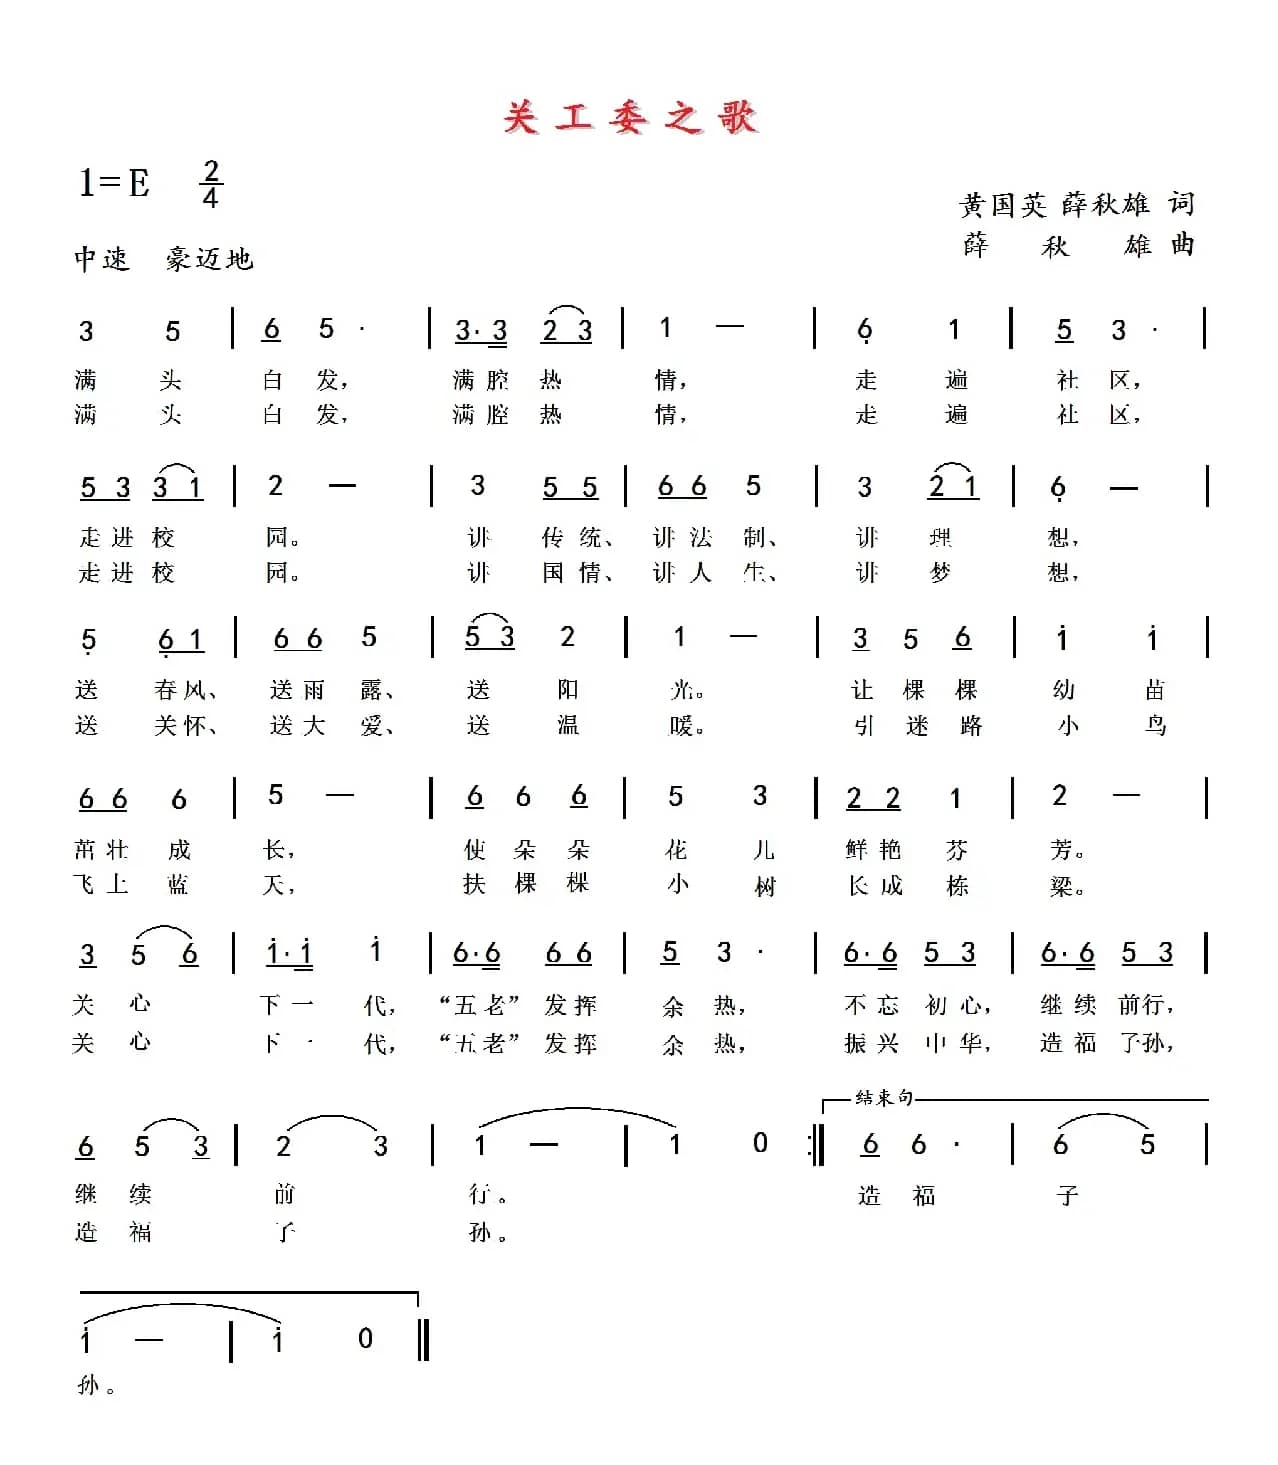 关工委之歌
1=E 2/4
黄国英 薛秋雄 词
中速 豪迈地
薛秋雄 曲
3 5 | 6 5 · | 3· 3 2 3 | 1 — | 6 1 | 5 3 · |
满头白发， 满腔热情， 走遍社区，
满头白发， 满腔热情， 走遍社区，
5 3 3 1 | 2 — | 3 5 5 | 6 6 5 | 3 2 1 | 6 — |
走进校园。 讲传统、讲法制、讲理想，
走进校园。 讲国情、讲人生、讲梦想，
5 6 1 | 6 6 5 | 5 3 2 | 1 — | 3 5 6 | 1 1 |
送春风、送雨露、送阳光。 让棵棵幼苗
送关怀、送大爱、送温暖。 引迷路小鸟
6 6 6 | 5 — | 6 6 6 | 5 3 | 2 2 1 | 2 — |
茁壮成长， 使朵朵花儿鲜艳芬芳。
飞上蓝天， 扶棵棵小树长成栋梁。
3 5 6 | 1· 1 1 | 6· 6 6 6 | 5 3 · | 6· 6 5 3 | 6· 6 5 3 |
关心下一代，“五老”发挥余热， 不忘初心， 继续前行，
关心下一代，“五老”发挥余热， 振兴中华， 造福子孙，
结束句
6 5 3 | 2 3 | 1 — | 1 0 :| 6 6 · | 6 5 |
继续前行。 造福子
造福子孙。
1 — | 1 0 ‖
孙。